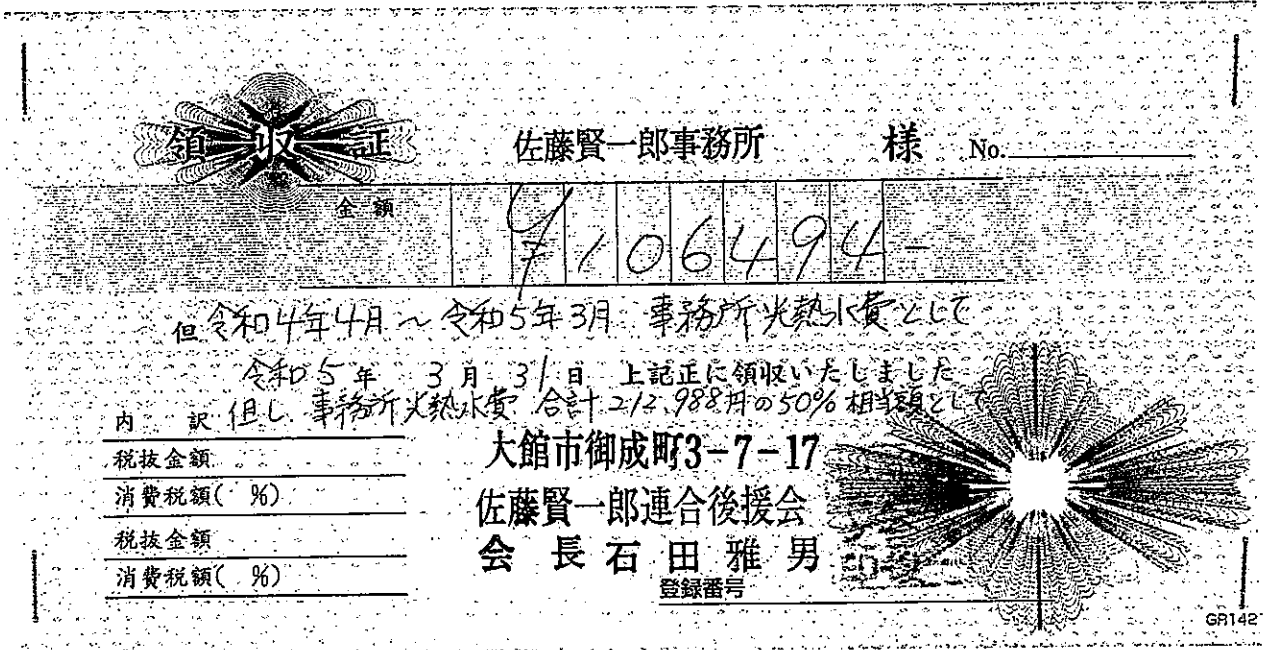 領収証
佐藤賢一郎事務所 様 No.
金額 ¥106494-
但 令和4年4月～令和5年3月 事務所光熱水費として
令和5年 3月 31日 上記正に領収いたしました
内訳 但し 事務所光熱水費 合計 212,988円の50%相当額として
税抜金額
消費税額( %)
税抜金額
消費税額( %)
大館市御成町3-7-17
佐藤賢一郎連合後援会
会長 石田雅男
登録番号
GR142